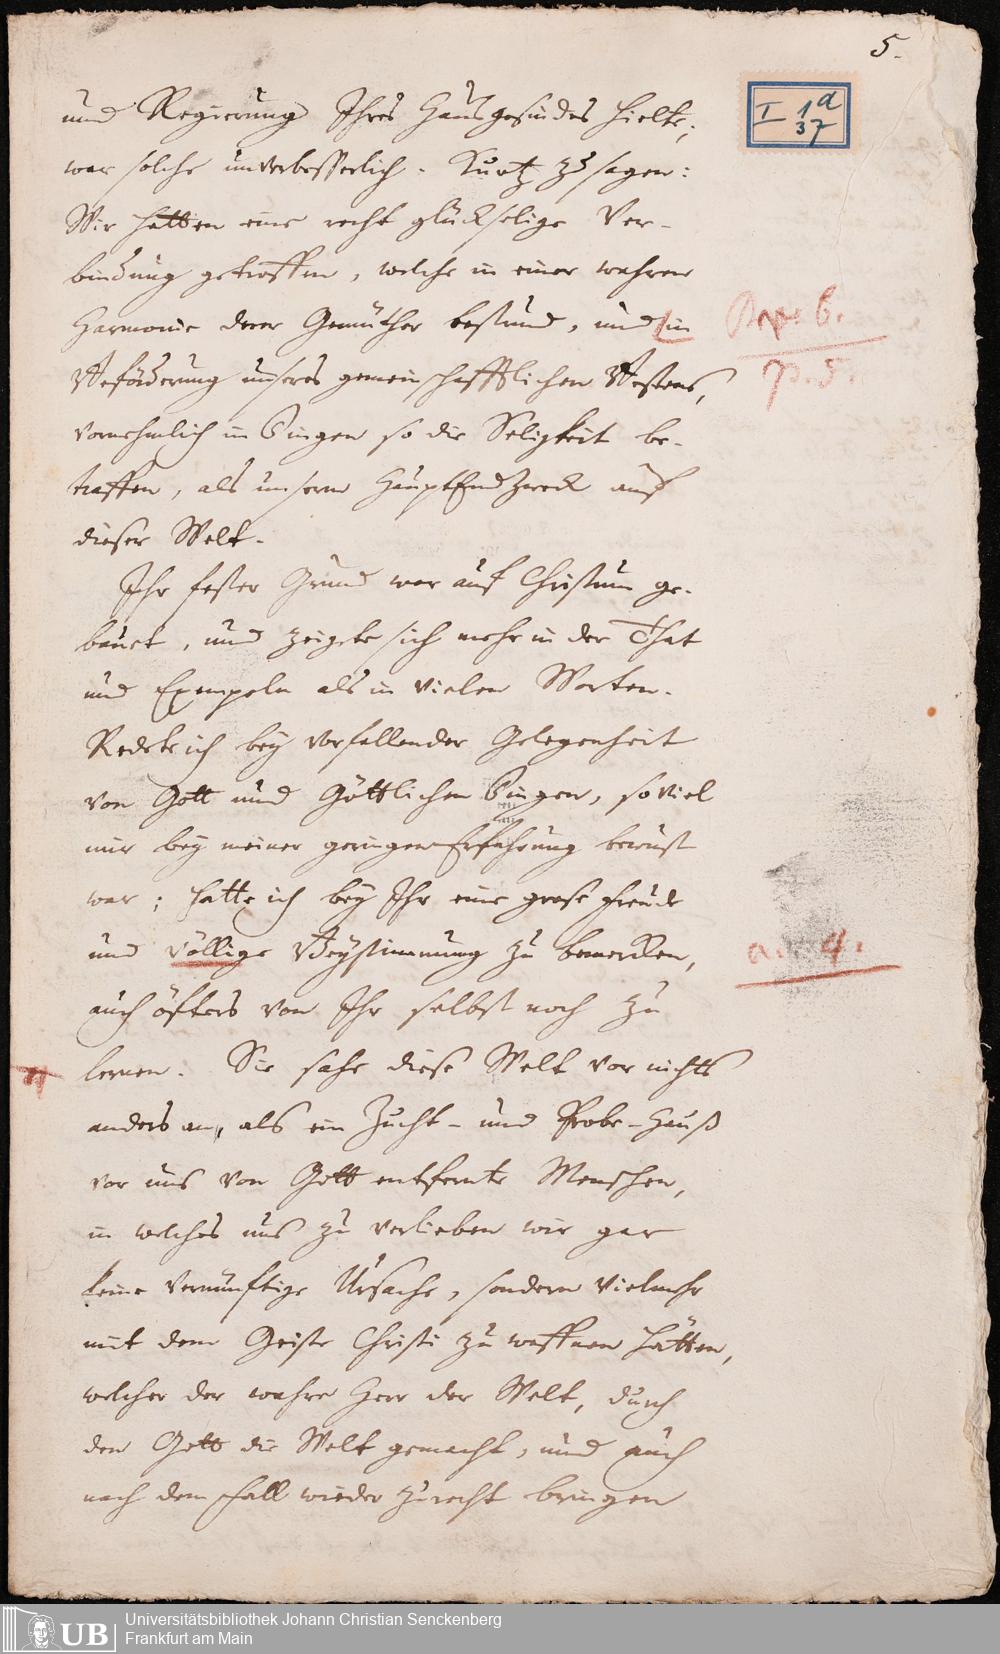 5.
I 1a
37
und Regierung Ihres Haußgesindes hielte,
war solche unverbesserlich. Kurtz zu sagen:
Wir hatten eine recht glückselige Ver-
bindung getroffen, welche in einer wahren
Harmonie derer Gemüther bestund, und in
Beförderung unseres gemeinschafftlichen Bestens,
vornehmlich in Dingen so die Seligkeit be-
traffen, als unserm HauptEndzweck auf
dieser Welt.
Ihr fester Grund war auf Christum ge-
bauet, und zeigete sich mehr in der That
und Exempeln als in vielen Worten.
Redete ich bey vorfallender Gelegenheit
von Gott und Göttlichen Dingen, so viel
mir bey meiner geringen Erfahrung bewust
war; hatte ich bey Ihr eine grose Freude
und völlige Beystimmung zu bemercken,
auch öffters von Ihr selbst noch zu
lernen. Sie sahe diese Welt vor nichts
anders an, als ein Zucht- und Probe-Hauß
vor uns von Gott entfernte Menschen,
in welches uns zu verlieben wir gar
keine vernünftige Ursache, sondern vielmehr
mit dem Geiste Christi zu waffnen hätten,
welcher der wahre Herr der Welt, durch
den Gott die Welt gemacht, und auch
nach dem Fall wieder zurecht bringen
6.
p. 5.
4.
UB
Universitätsbibliothek Johann Christian Senckenberg
Frankfurt am Main